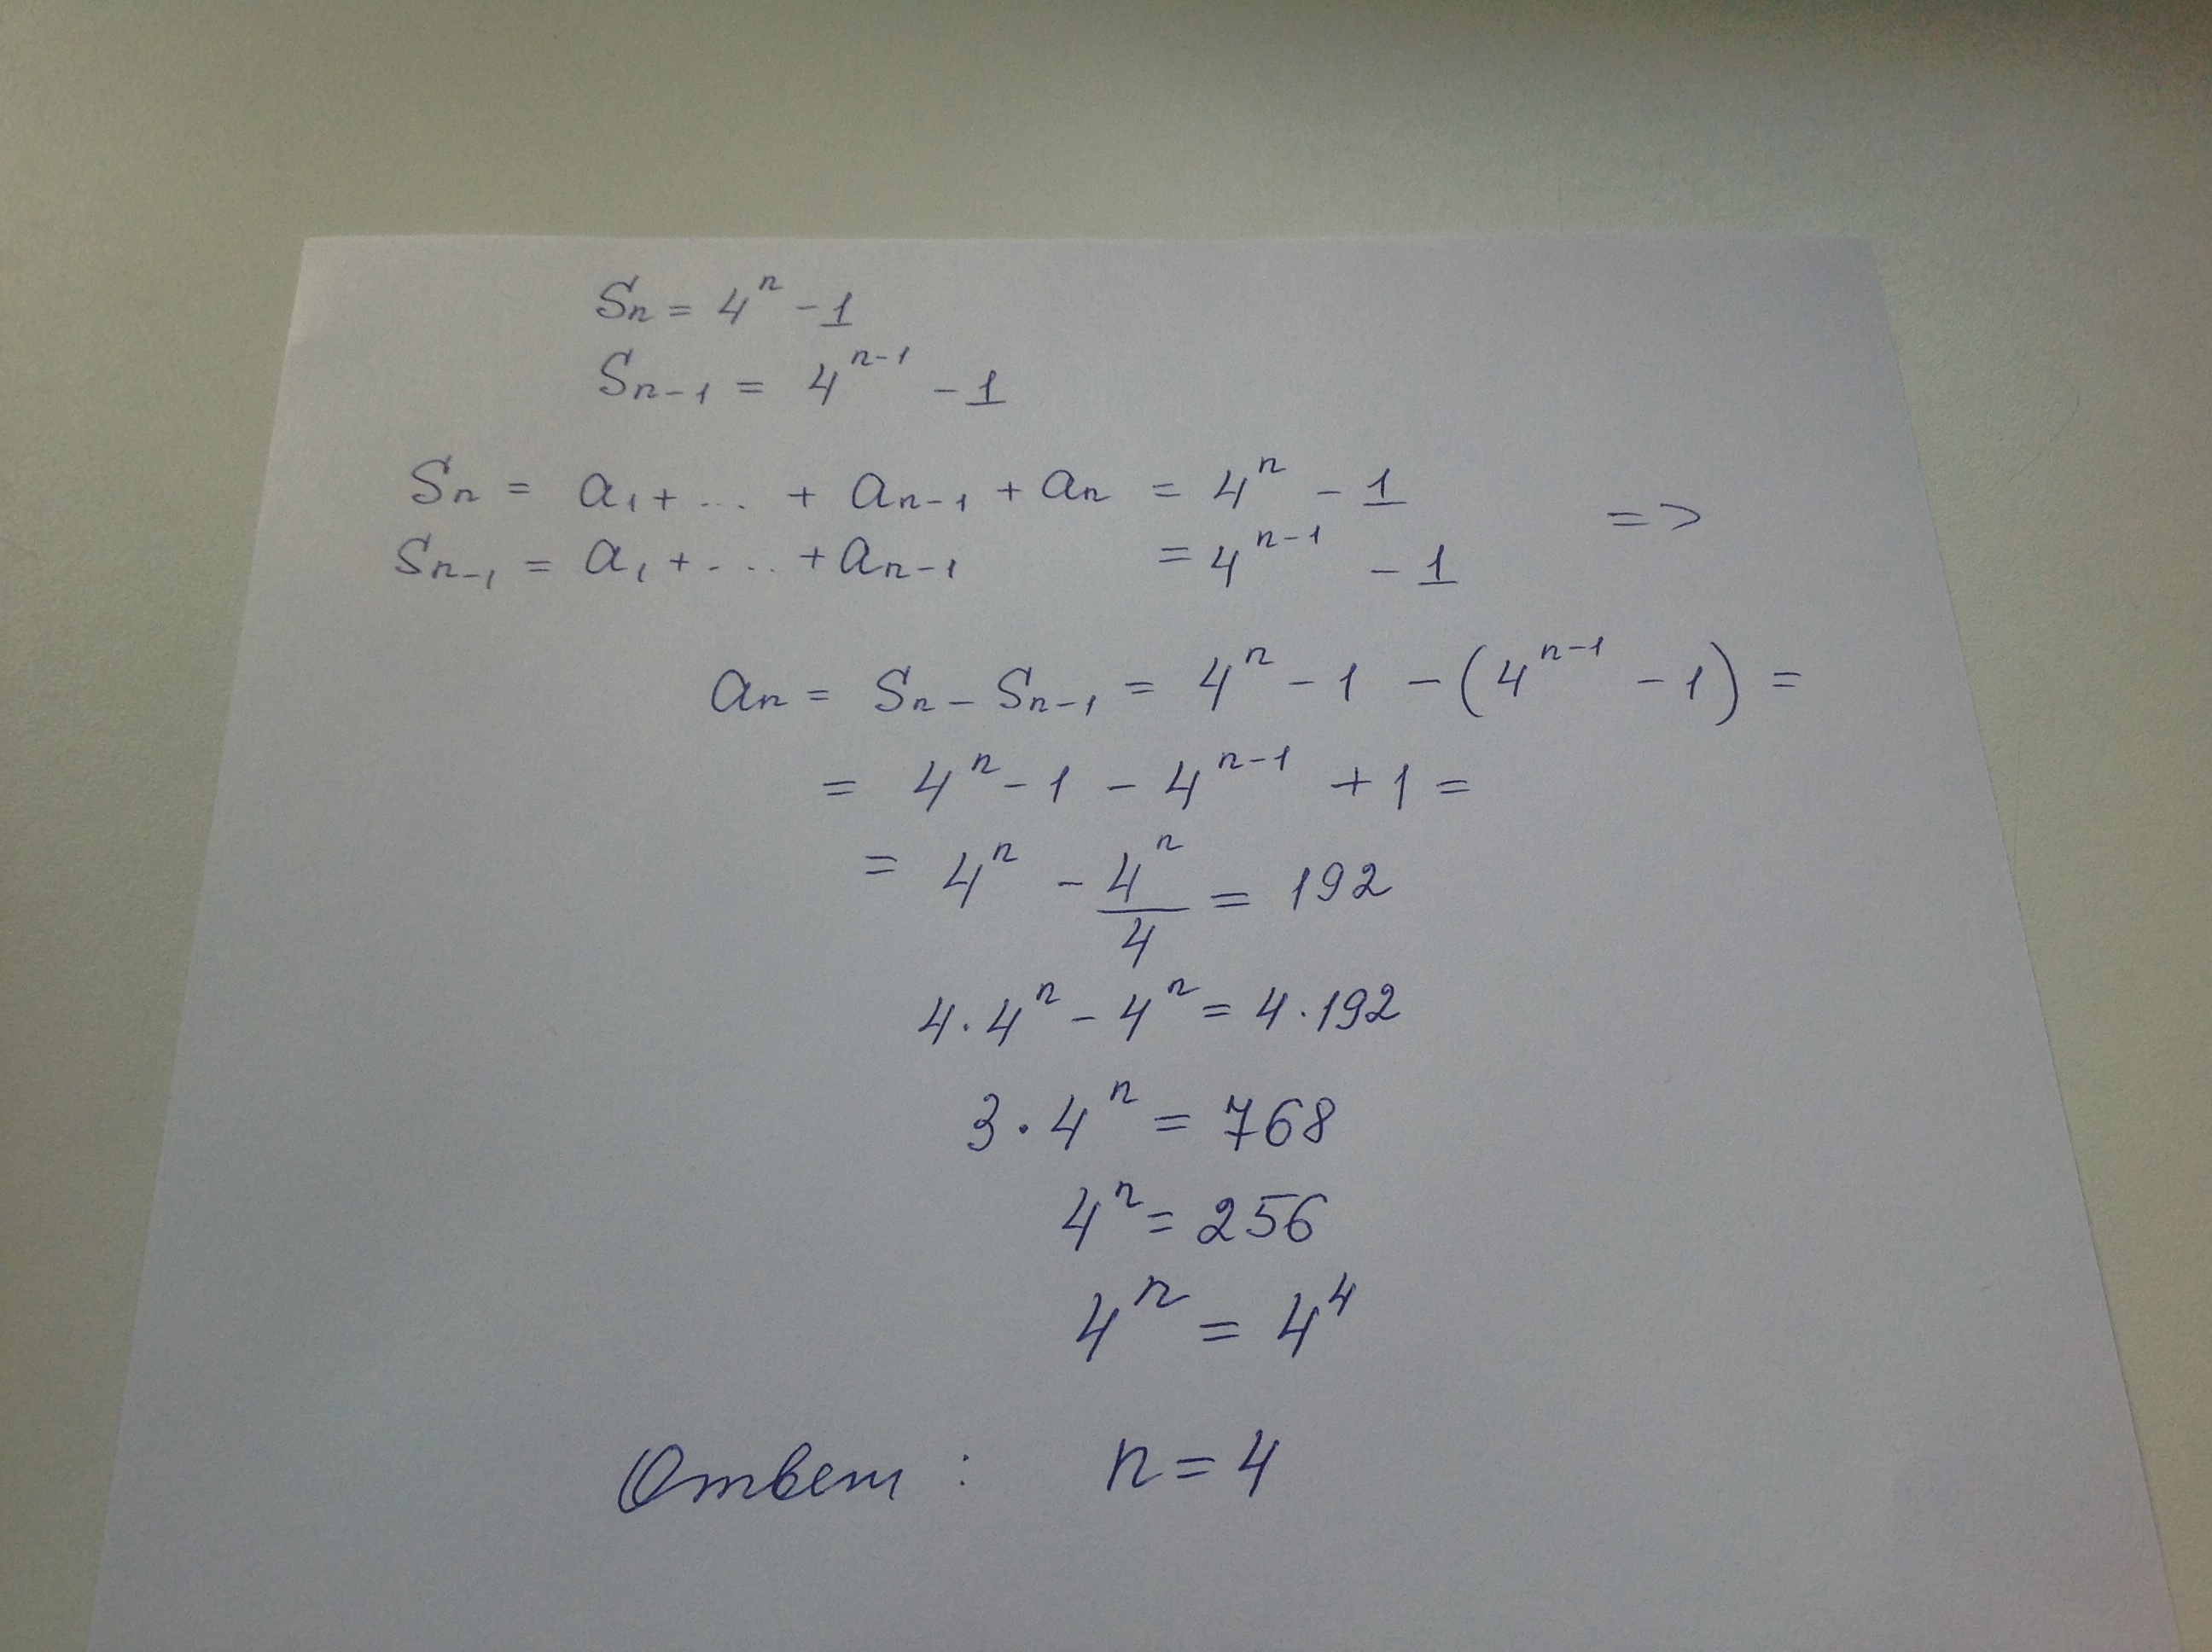 Sn = 4^n - 1
Sn-1 = 4^(n-1) - 1
Sn = a1 + ... + an-1 + an = 4^n - 1 =>
Sn-1 = a1 + ... + an-1 = 4^(n-1) - 1
an = Sn - Sn-1 = 4^n - 1 - (4^(n-1) - 1) =
= 4^n - 1 - 4^(n-1) + 1 =
= 4^n - 4^n/4 = 192
4·4^n - 4^n = 4·192
3·4^n = 768
4^n = 256
4^n = 4^4
Ответ: n = 4